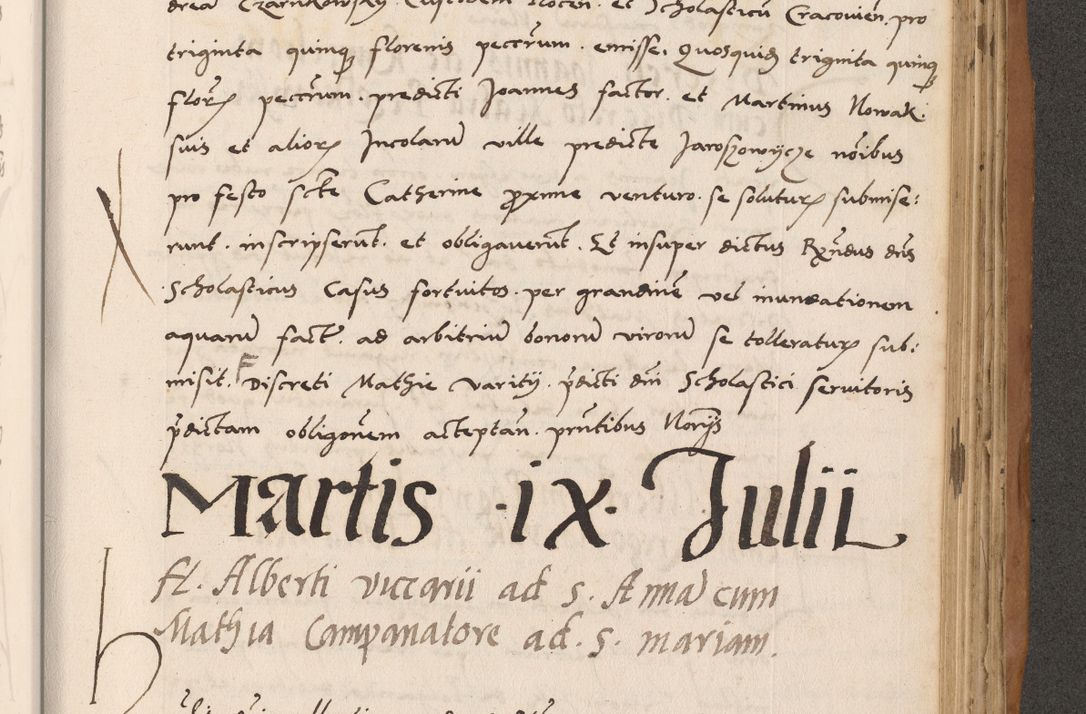 drea Czarnkowsky Custodem Plocen. et Scholasticũ Cracovien, pro
triginta quinqꝫ florenis peccrum. emisse. Quosquidꝫ triginta quinqꝫ
florꝝ peccrum. predicti Joannes factor. et Martinus Nowak.
suis et aliorꝝ Incolarũ ville predicte Jaroszowycze nõibus
pro festo sctẽ Catherine ꝓxime venturo. se soluturꝝ submise:
runt. inscripserũt. et obligaverũt. Et insuper dictus Rx̃ndus dñs
Scholasticus Casus fortuitos. per grandinẽ vel inundationem
aquarũ fact̃. ad arbitriũ bonorũ virorũ se tolleraturꝝ sub:
misit. Discreti Mathie varity. p̃dicti dñi Scholastici servitoris
p̃dictam obligoñem acceptañ. pñtibus Norijs
Martis ·ix· Julii
fl. Alberti viccarii ad s. Annã cum
Mathia Campanatore ad. s. mariam.